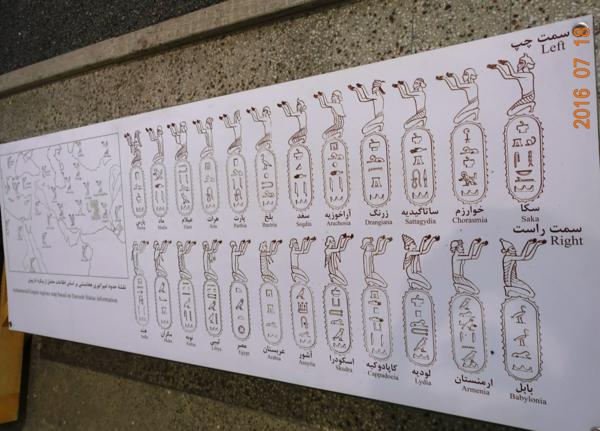 سمت چپ
Left
2016 07 18
پارس
Persia
ماد
Mada
عیلام
Elam
هرات
Aria
پارت
Parthia
بلخ
Bactria
سغد
Sogdia
آراخوزیه
Arachosia
زرنگ
Drangiana
ساتاگیدیه
Sattagydia
خوارزم
Chorasmia
سکا
Saka
سمت راست
Right
هند
India
مکران
Maka
نوبه
Nubia
لیبی
Libya
مصر
Egypt
عربستان
Arabia
آشور
Assyria
اسکودرا
Skudra
کاپادوکیه
Cappadocia
لودیه
Lydia
ارمنستان
Armenia
بابل
Babylonia
نقشه حدود امپراتوری هخامنشی بر اساس اطلاعات حاصل از پیکره داریوش
Achaemenid Empire regions map based on Darius's Statue information